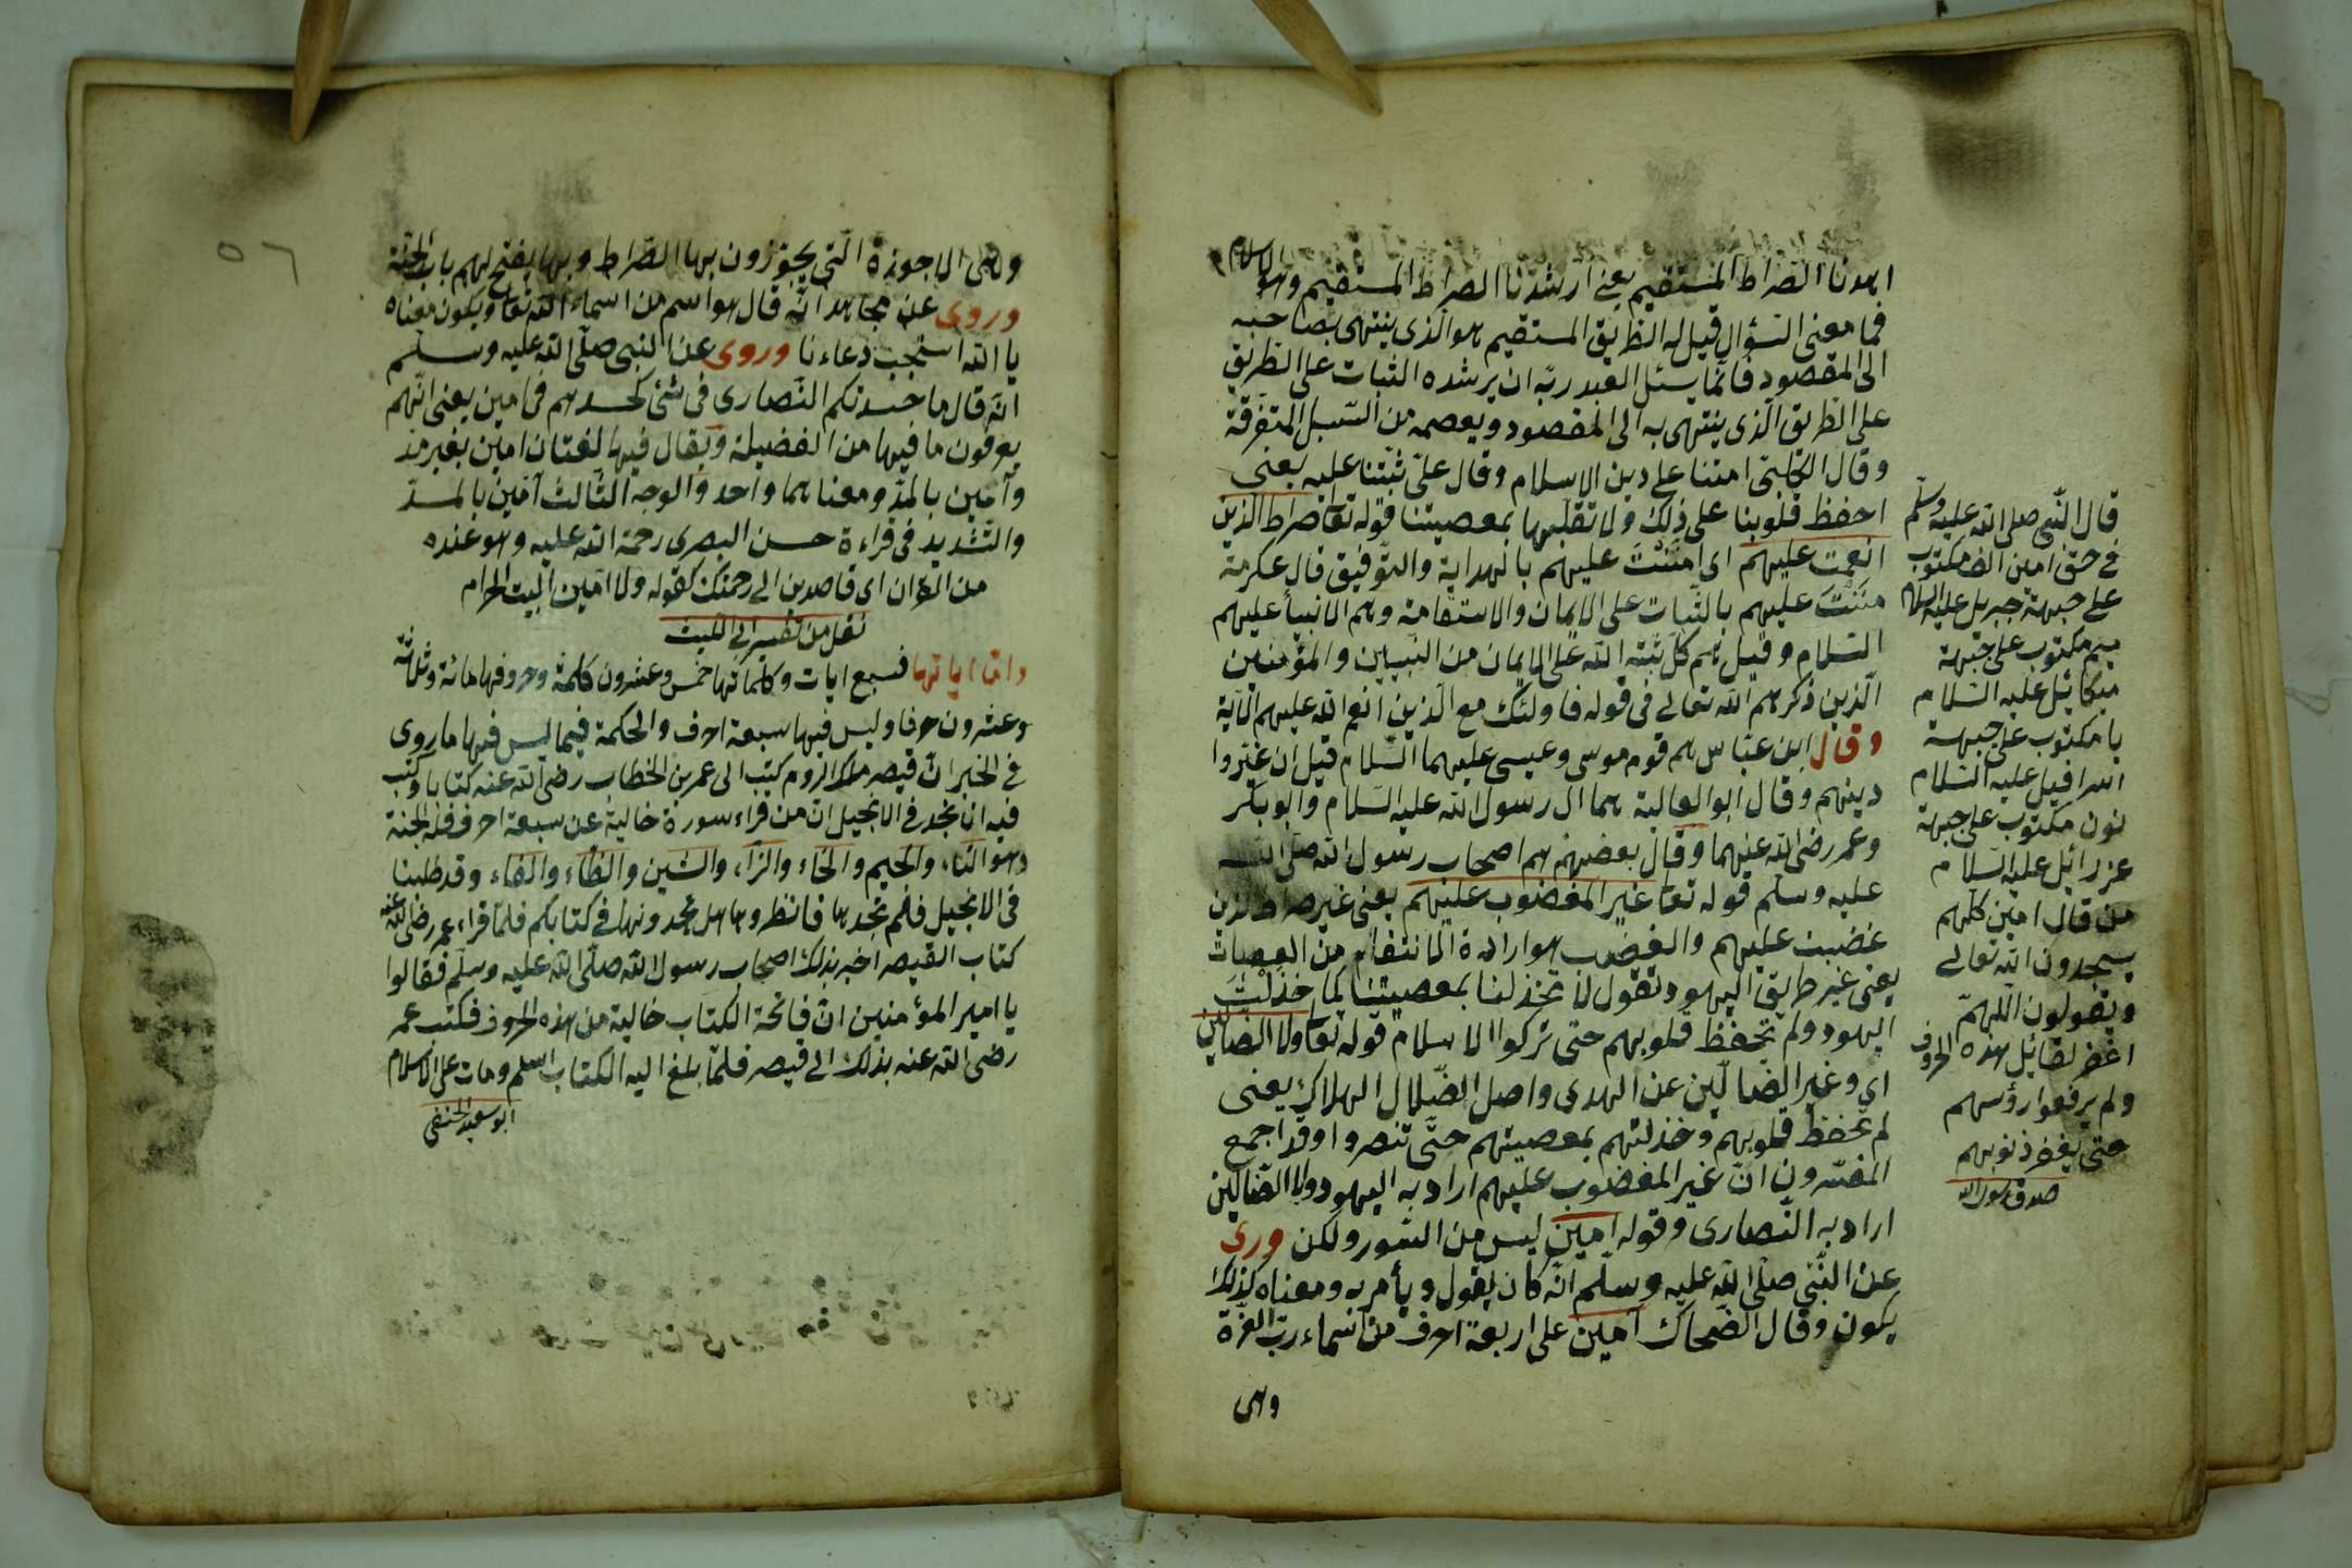 اهدنا الصراط المستقيم يعنى ارشدنا الصراط المستقيم وهو الاسلام
فما معنى السؤال قيل له الطريق المستقيم هو الذى ينتهى بصاحبه
الى المقصود فانّما يسئل العبد ربّه ان يرشده الثبات على الطريق
على الطريق الّذى ينتهى به الى المقصود ويعصمه من السّبل المتفرّقة
وقال الكلبىّ امتنا على دين الاسلام وقال علىّ ثبّتنا عليه يعنى
احفظ قلوبنا على ذلك ولا تقلّبها بمعصيتنا قوله تعا صراط الّذين
انعمت عليهم اى مننت عليهم بالهداية والتّوفيق قال عكرمة
مننت عليهم بالثّبات على الايمان والاستقامة وهم الانبيأ عليهم
السّلام وقيل هم كلّ ثبّته اللّه على الايمان من النّبيين والمؤمنين
الّذين ذكرهم اللّه تعالى فى قوله فاولئك مع الّذين انعم اللّه عليهم الآية
وقال ابن عبّاس هم قوم موسى وعيسى عليهما السّلام قبل ان غيّروا
دينهم وقال ابو العالية هما ال رسول اللّه عليه السّلام وابو بكر
وعمر رضى اللّه عنهما وقال بعضهم هم اصحاب رسول اللّه صلّى اللّه
عليه وسلّم قوله تعا غير المغضوب عليهم يعنى غير صراط الذين
غضبت عليهم والغضب هو ارادة الانتقام من العصاة
يعنى غير طريق اليهود وتقول لا تخذلنا بمعصيتنا كما خذلت
اليهود ولم تحفظ قلوبهم حتى تركوا الاسلام قوله تعا ولا الضّالّين
اى وغير الضّالّين عن الهدى واصل الضّلال الهلاك يعنى
لم تحفظ قلوبهم وخذلتهم بمعصيتهم حتّى تنصروا وقد اجمع
المفسّرون انّ غير المغضوب عليهم اراد به اليهود ولا الضّالّين
اراد به النّصارى وقوله امين ليس من السّور ولكن وروى
عن النّبى صلّى اللّه عليه وسلّم انّه كان يقول ويأمر به ومعناه كذلك
يكون وقال الضّحاك آمين على اربعة احرف من اسماء ربّ العزّة
وهى
قال النّبى صلى اللّه عليه وسلّم
فى حقّ امين الف مكتوب
على جبهة جبريل عليه السلام
ميم مكتوب على جبهة
ميكائيل عليه السّلام
يا مكتوب على جبهة
اسرافيل عليه السّلام
نون مكتوب على جبهة
عزرائيل عليه السّلام
من قال امين كلّهم
يسجدون اللّه تعالى
ويقولون اللّهمّ
اغفر لقائل هذه الحروف
ولم يرفعوا رؤسهم
حتى يغفر ذنوبهم
صدق رسول اللّه
وهى الاجوزة الّتى يجوّزون بها الصّراط وبها يفتح لهم باب الجنّة
وروى عن مجاهد انّه قال هو اسم من اسماء اللّه تعا ويكون معناه
يا اللّه استجب دعاءنا وروى عن النبى صلّى اللّه عليه وسلّم
انّه قال ما حسدتكم النّصارى فى شئ كحسدهم فى امين يعنى انّهم
يعرفون ما فيها من الفضيلة ويقال فيها لغتان امين بغير مدّ
وآمين بالمدّ ومعناهما واحد والوجه الثّالث آمّين بالمدّ
والتّشديد فى قراءة حسن البصرى رحمة اللّه عليه وهو عنده
من القرآن اى قاصدين الى رحمتك كقوله ولا آمّين البيت الحرام
نقل من تفسير ابى الليث
وامّا اياتها فسبع ايات وكلماتها خمس وعشرون كلمة وحروفها مائة وثلاثة
وعشرون حرفا وليس فيها سبعة احرف والحكمة فيما ليس فيها ما روى
فى الخبر انّ قيصر ملك الروم كتب الى عمر بن الخطاب رضى اللّه عنه كتابا وكتب
فيه انا نجد فى الانجيل انّ من قراء سورة خالية عن سبعة احرف فله الجنة
وهو الثاء والجيم والخاء والزاء والشّين والظاء والفاء وقد طلبنا
فى الانجيل فلم نجدها فانظروها هل تجدونها فى كتابكم فلمّا قراء عمر رضى اللّه عنه
كتاب القيصر اخبر بذلك اصحاب رسول اللّه صلّى اللّه عليه وسلّم فقالوا
يا امير المؤمنين انّ فاتحة الكتاب خالية من هذه الحروف فكتب عمر
رضى اللّه عنه بذلك الى قيصر فلمّا بلغ اليه الكتاب اسلم ومات على الاسلام
ابو سعيد الحنفى